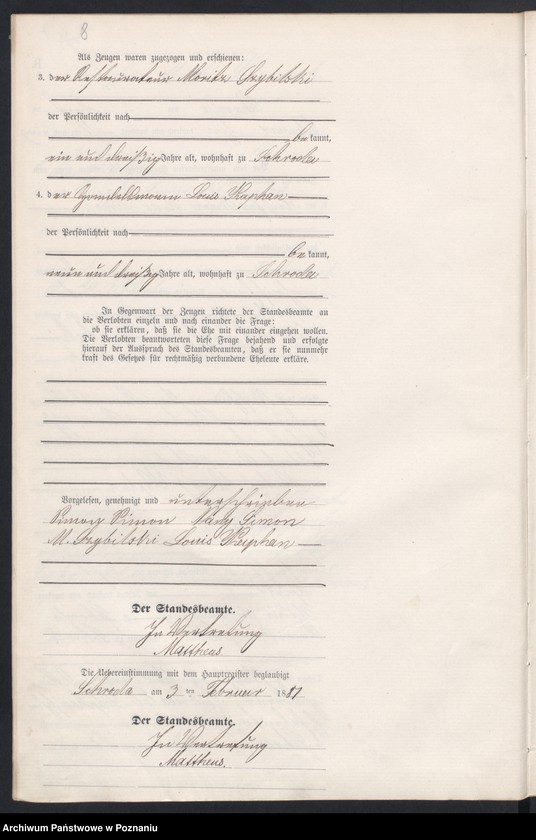 8
Als Zeugen waren zugezogen und erschienen:
3. der Restaurateur Moritz
der Persönlichkeit nach
bekannt,
ein und dreißig Jahre alt, wohnhaft zu Schroda
4. der Handelsmann Louis Kaphan
der Persönlichkeit nach
bekannt,
neun und dreißig Jahre alt, wohnhaft zu Schroda
In Gegenwart der Zeugen richtete der Standesbeamte an
die Verlobten einzeln und nach einander die Frage:
ob sie erklären, daß sie die Ehe mit einander eingehen wollen.
Die Verlobten beantworteten diese Frage bejahend und erfolgte
hierauf der Ausspruch des Standesbeamten, daß er sie nunmehr
kraft des Gesetzes für rechtmäßig verbundene Eheleute erkläre.
Vorgelesen, genehmigt und unterschrieben
Simon Fany Simon
M. Louis Kaphan
Der Standesbeamte.
In Vertretung
Mattheus.
Die Uebereinstimmung mit dem Hauptregister beglaubigt
Schroda am 3 ten Februar 1881
Der Standesbeamte.
In Vertretung
Mattheus.
Archiwum Państwowe w Poznaniu